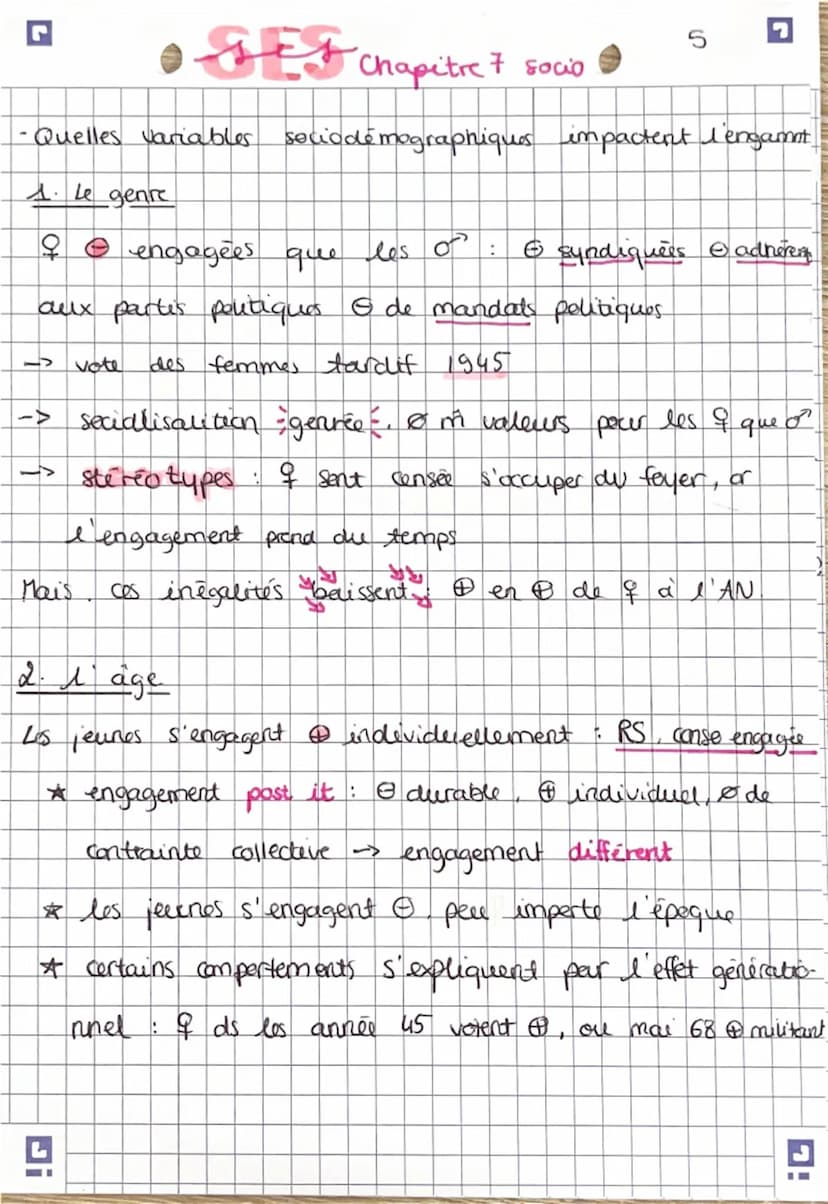 SES Chapitre 7 socio
5
- Quelles variables sociodémographiques impactent l'engamnt
1. Le genre
♀ ⊖ engagées que les ♂ : ⊖ syndiquées ⊖ adhérent
aux partis politiques ⊖ de mandats politiques
-> vote des femmes tardif 1945
-> socialisation genrée. ø m̂ valeurs pour les ♀ que ♂
-> stéréotypes : ♀ sont censée s'occuper du foyer, or
l'engagement prend du temps
Mais. ces inégalités baissent : ⊕ en ⊕ de ♀ à l'AN.
2. l'âge
Les jeunes s'engagent ⊕ individuellement : RS, conso engagée
☆ engagement post it : ⊖ durable, ⊕ individuel, ø de
contrainte collective -> engagement différent
☆ les jeunes s'engagent ⊖, peu importe l'époque
☆ certains comportements s'expliquent par l'effet génératio-
nnel : ♀ ds les année 45 votent ⊕, ou mai 68 ⊕ militant